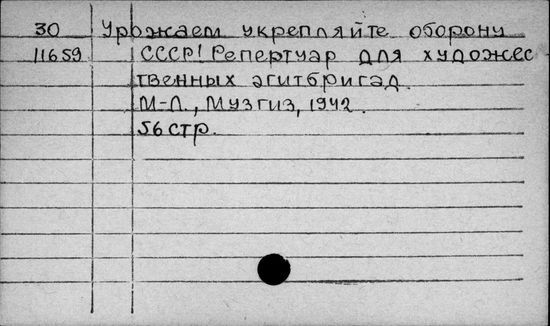 30 Урожаем укрепляйте оборону
11659 СССР! Репертуар для художес
твенных агитбригад.
М-Л., Музгиз, 1942.
56 стр.